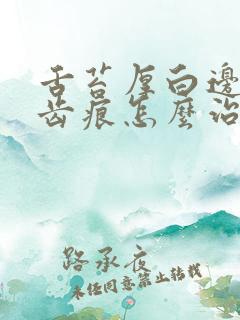 舌苔厚白邊
齿痕怎麼治
路承夜
未经同意禁止转载